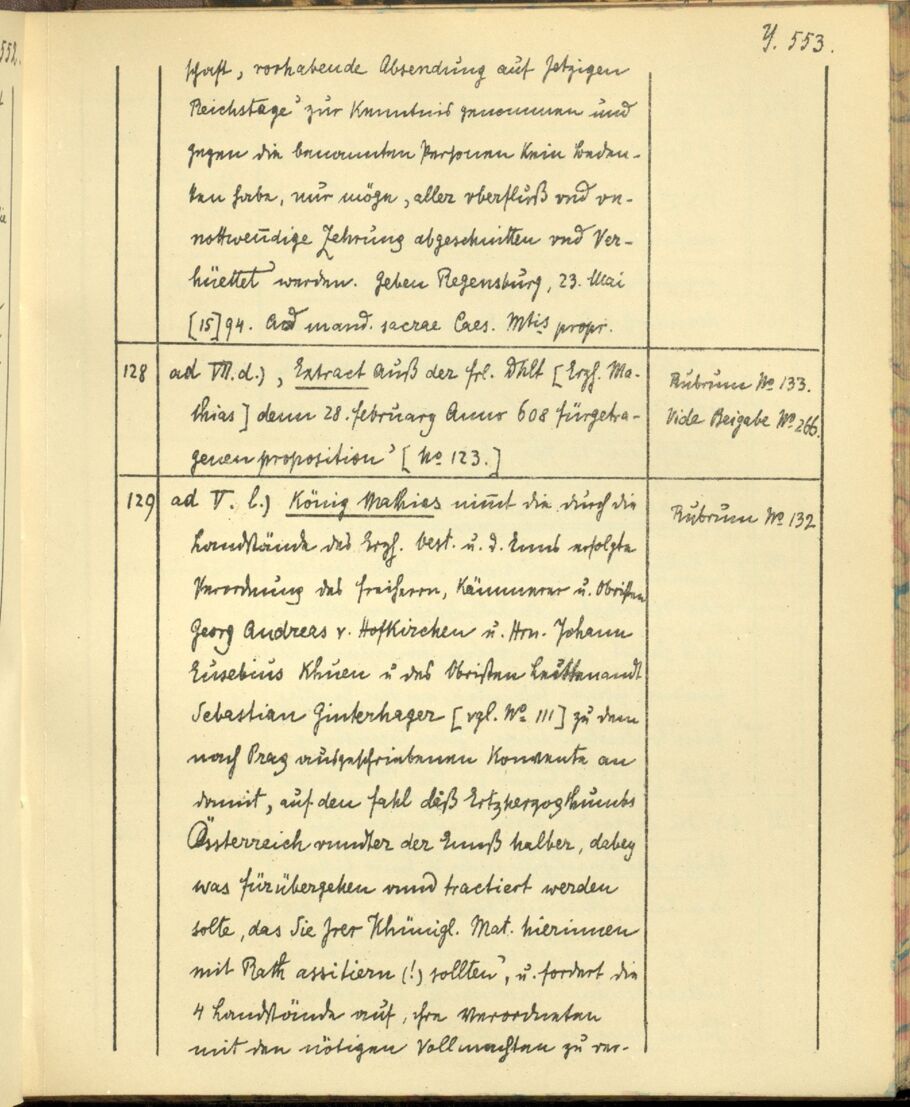 552.
Y. 553.
schaft, vorhabende Absendung auf Jetzigen
Reichstage' zur Kenntnis genommen und
gegen die benannten Personen kein Beden-
ken habe, nur möge, aller vberfluß vnd vn-
nottwendige Zehrung abgeschnitten vnd Ver-
hüettet' werden. Geben Regensburg, 23. Mai
[15]94. Ad mand. sacrae Caes. Mtis propr.
128 ad VII. d.) , Extract auß der frl. Dhlt [Erzh. Ma-
thias] denn 28. february Anno 608 fürgetra-
genen proposition' [No 123.]
Rubrum No 133.
Vide Beigabe No 266.
129 ad V. l.) König Mathias nimt die durch die
Landstände des Erzh. Öest. u. d. Enns erfolgte
Verordnung des Freiherrn, Kämmerer u. Obristen
Georg Andreas v. Hofkirchen u. Hrn. Johann
Eusebius Khuen u des Obristen Leuttenandt
Sebastian Ginterhager [vgl. No 111] zu dem
nach Prag ausgeschriebenen Konvente an
damit, auf den fahl diß Ertzherzogthumbs
Össterreich vnndter der Ennß halber, dabey
was fürübergehen vnnd tractiert werden
solte, das Sie Irer Khünigl. Mat. hierinnen
mit Rath assitiern (!) sollten', u. fordert die
4 Landstände auf, ihre Verordneten
mit den nötigen Vollmachten zu ver-
Rubrum No 132